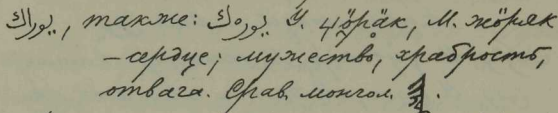 يوراك, также: يورەك У. ӌöрäк, М. жöряк
– сердце; мужество, храбрость,
отвага. Срав. монгол.